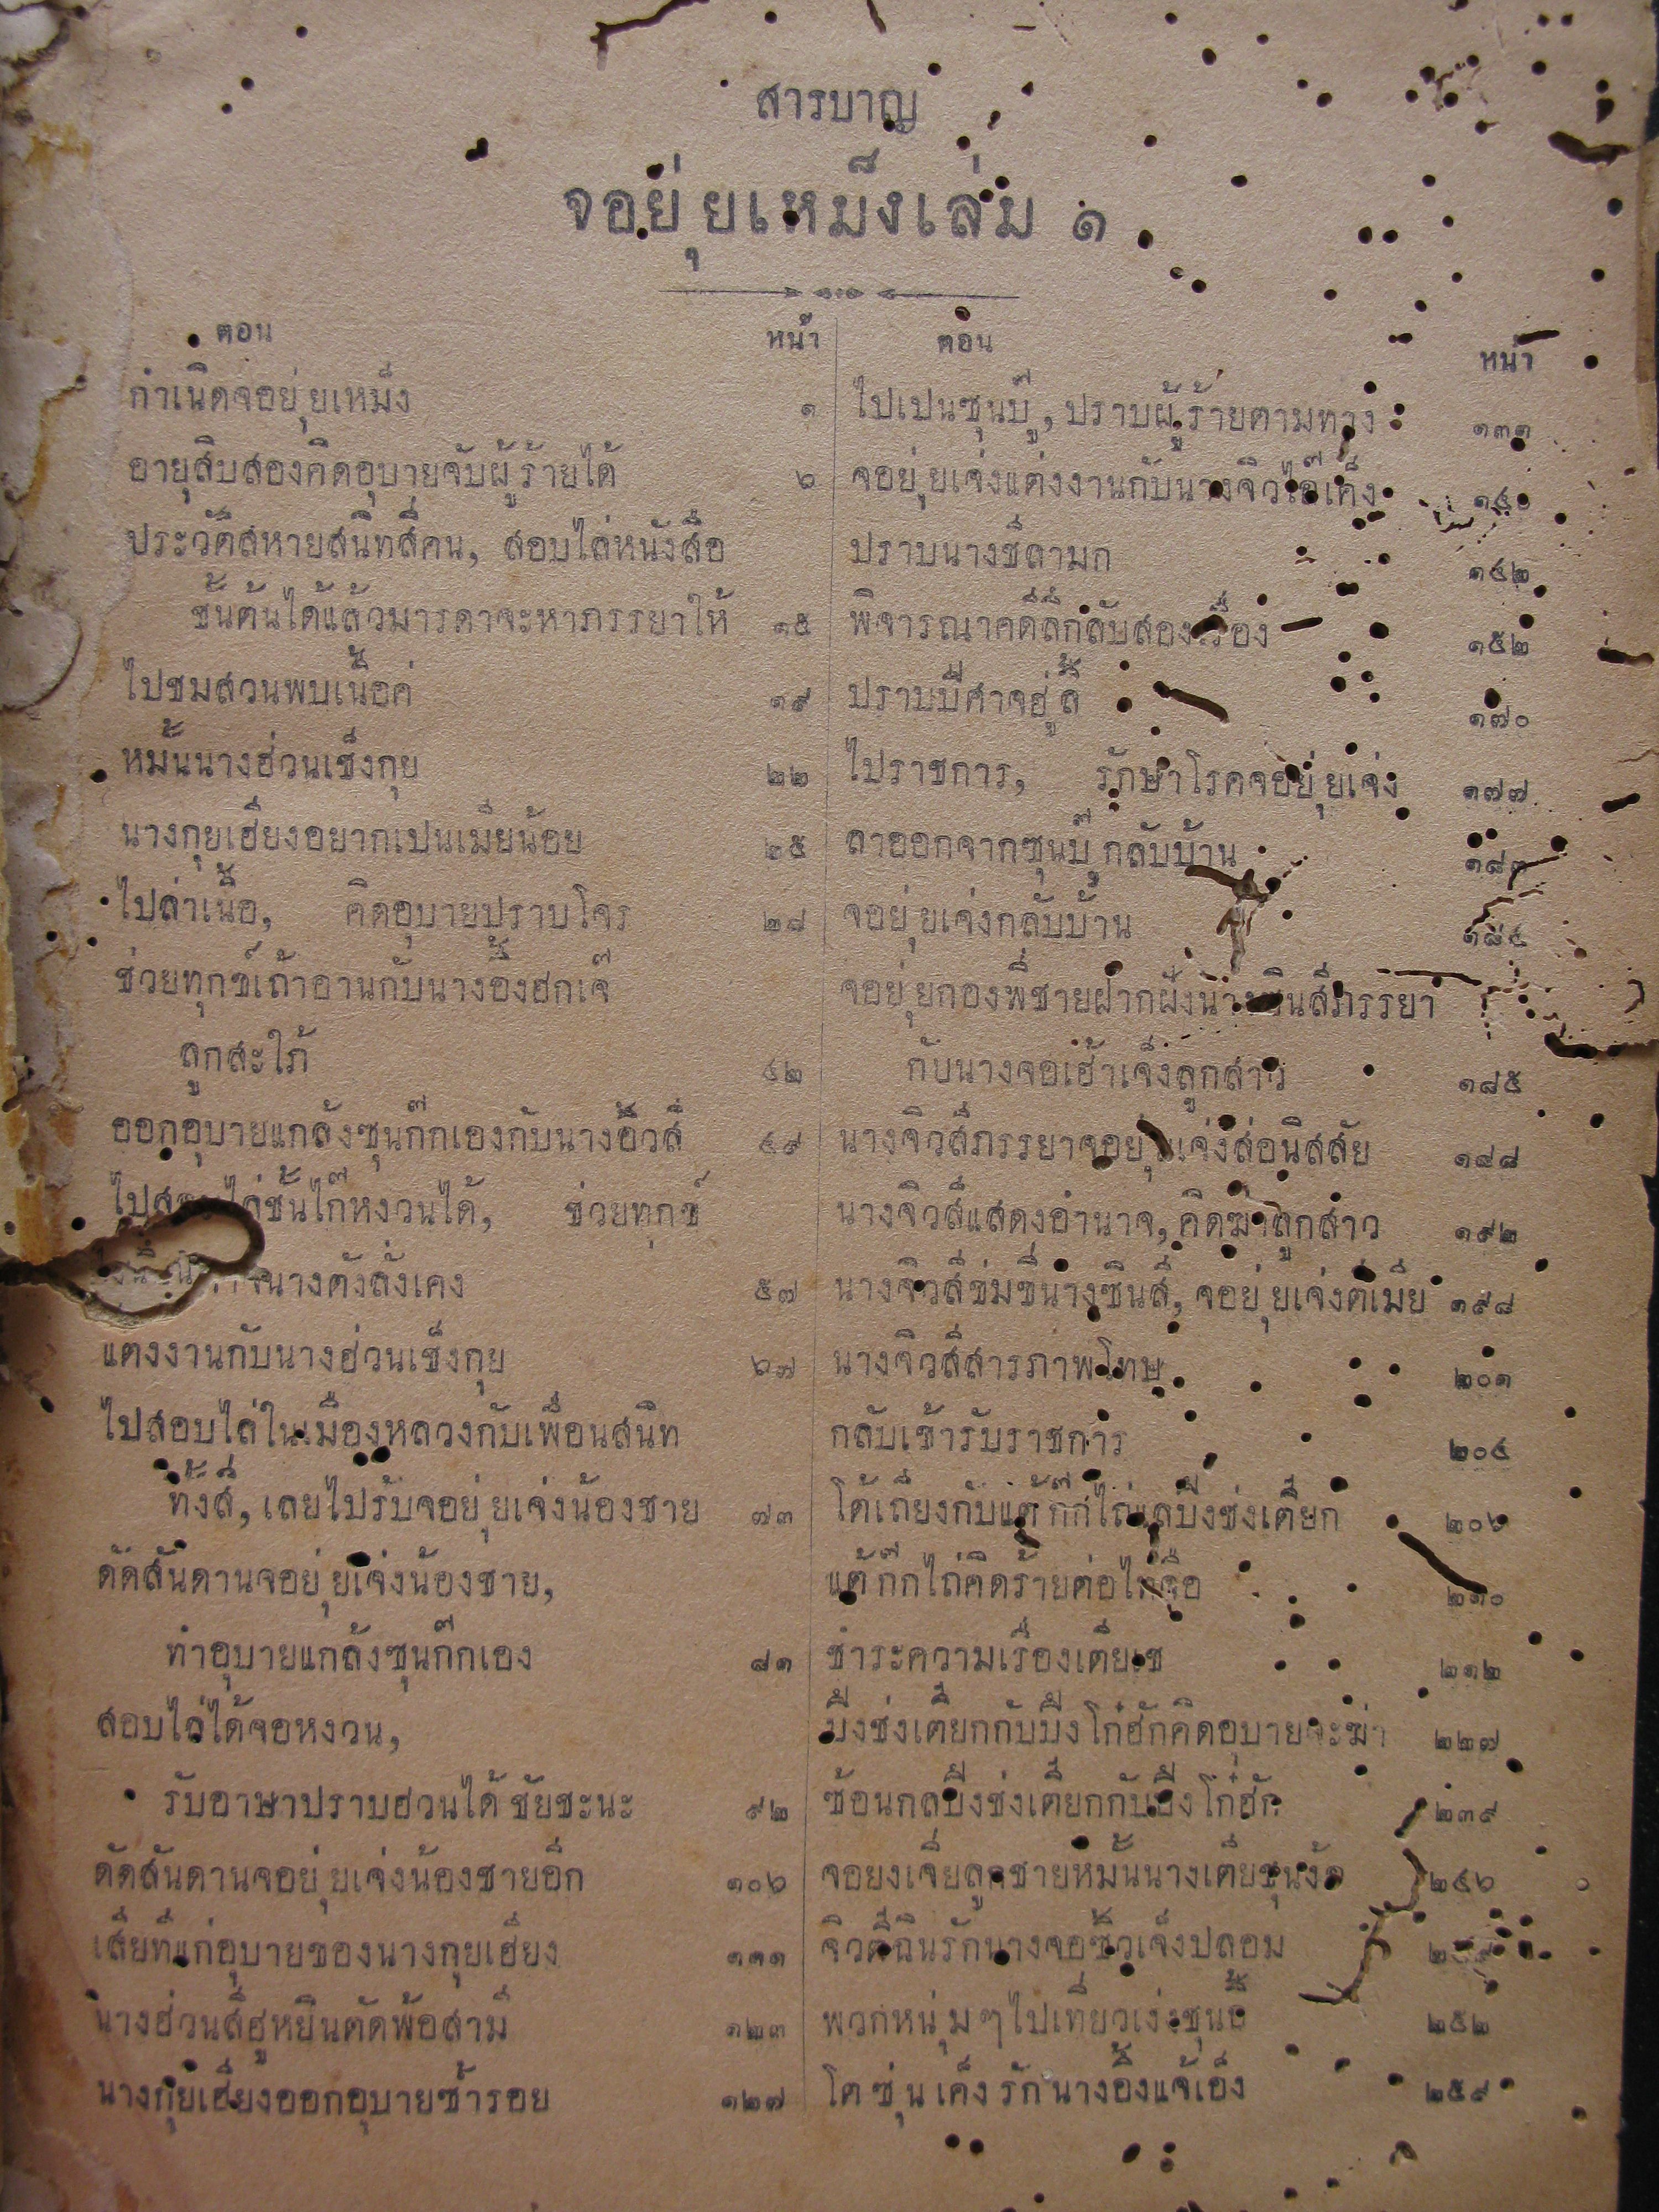 สารบาญ
จอยุ่ยเหม็งเล่ม ๑
ตอน หน้า
กำเนิดจอยุ่ยเหม็ง ๑
อายุสิบสองคิดอุบายจับผู้ร้ายได้ ๖
ประวัติสหายสนิทสี่คน, สอบไล่หนังสือ
ชั้นต้นได้แล้วมารดาจะหาภรรยาให้ ๑๕
ไปชมสวนพบเนื้อคู่ ๑๙
หมั้นนางฮ่วนเช็งกุย ๒๒
นางกุยเฮียงอยากเปนเมียน้อย ๒๕
ไปล่าเนื้อ, คิดอุบายปราบโจร ๒๘
ช่วยทุกข์เถ้าอานกับนางอึ้งฮกเจ๊
ลูกสะใภ้ ๔๒
ออกอุบายแกล้งซุนก๊กเองกับนางอิ้วสี ๔๙
ไล่ชั้นไก๊หงวนได้, ช่วยทุกข์
นางตังลั่งเคง ๕๗
แต่งงานกับนางฮ่วนเช็งกุย ๖๗
ไปสอบไล่ในเมืองหลวงกับเพื่อนสนิท
ทั้งสี่, เลยไปรับจอยุ่ยเจ่งน้องชาย ๗๓
ดัดสันดานจอยุ่ยเจ่งน้องชาย,
ทำอุบายแกล้งซุนก๊กเอง ๘๑
สอบไล่ได้จอหงวน,
รับอาษาปราบฮวนได้ชัยชะนะ ๙๒
ดัดสันดานจอยุ่ยเจ่งน้องชายอีก ๑๐๖
เสียทีแก่อุบายของนางกุยเฮียง ๑๑๑
นางฮ่วนสีฮูหยินตัดพ้อสามี ๑๒๓
นางกุยเฮียงออกอุบายซ้ำรอย ๑๒๗
ตอน หน้า
ไปเปนซุนบู๊, ปราบผู้ร้ายตามทาง ๑๓๑
จอยุ่ยเจ่งแต่งงานกับนางจิวไอ๊เค็ง ๑๔๐
ปราบนางชีลามก ๑๔๒
พิจารณาคดีลึกลับสองเรื่อง ๑๕๒
ปราบปีศาจฮู่ลี้ ๑๗๐
ไปราชการ, รักษาโรคจอยุ่ยเจ่ง ๑๗๗
ลาออกจากซุนบู๊กลับบ้าน
จอยุ่ยเจ่งกลับบ้าน ๑๘๔
จอยุ่ยกองพี่ชายฝากฝังนางซินสีภรรยา
กับนางจอเฮ้าเจ็งลูกสาว ๑๘๕
นางจิวสีภรรยาจอยุ่ยเจ่งส่อนิสสัย ๑๘๘
นางจิวสีแสดงอำนาจ, คิดฆ่าลูกสาว ๑๙๒
นางจิวสีข่มขี่นางซินสี, จอยุ่ยเจ่งตีเมีย ๑๙๘
นางจิวสีสารภาพโทษ ๒๐๑
กลับเข้ารับราชการ ๒๐๔
โต้เถียงกับแต้ก๊กไถ่แลบีงช่งเตียก ๒๐๖
แต้ก๊กไถ่คิดร้ายต่อ ๒๑๐
ชำระความเรื่องเตียเซ ๒๑๒
บีงช่งเตียกกับบีงโก๋ฮักคิดอุบายจะฆ่า ๒๒๗
ซ้อนกลบีงช่งเตียกกับบีงโก๋ฮัก ๒๓๙
จอยงเจี่ยลูกชายหมั้นนางเตียชุน ๒๔๖
นางจอซิ้วเจ็งปลอม
พวกหนุ่มๆไปเที่ยวเง่งชุนอี้ ๒๕๒
โตซุ่นเค็งรักนางอึ้งแจ้เอ็ง ๒๕๙